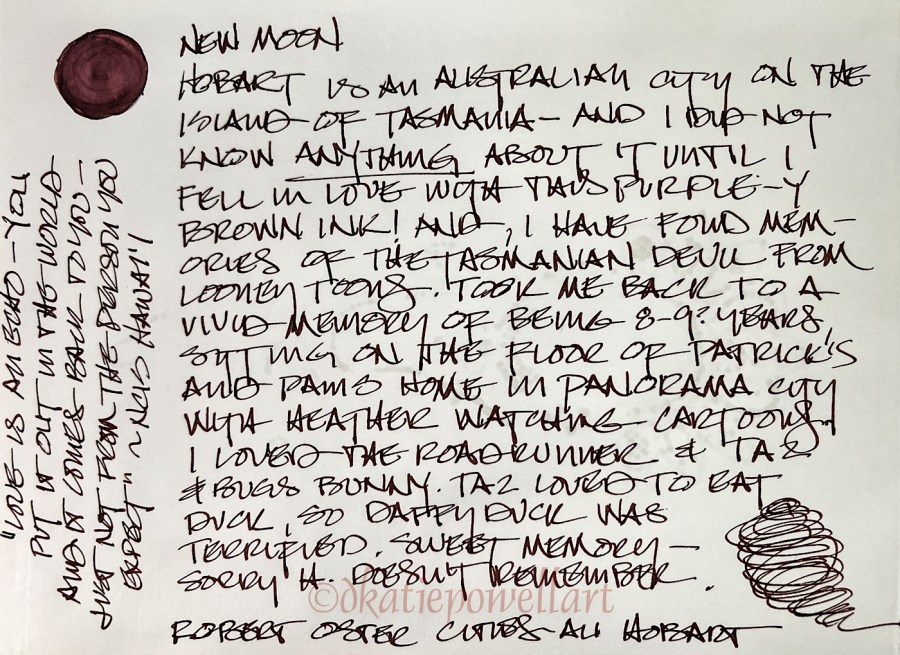 NEW MOON
HOBART IS AN AUSTRALIAN CITY ON THE
ISLAND OF TASMANIA – AND I DID NOT
KNOW ANYTHING ABOUT IT UNTIL I
FELL IN LOVE WITH THIS PURPLE-Y
BROWN INK! AND, I HAVE FOUND MEM-
ORIES OF THE TASMANIAN DEVIL FROM
LOONEY TOONS. TOOK ME BACK TO A
VIVID MEMORY OF BEING 8-9? YEARS,
SITTING ON THE FLOOR OF PATRICK'S
AND PAM'S HOME IN PANORAMA CITY
WITH HEATHER WATCHING CARTOONS!
I LOVED THE ROADRUNNER & TAZ
& BUGS BUNNY. TAZ LOVED TO EAT
DUCK, SO DAFFY DUCK WAS
TERRIFIED. SWEET MEMORY –
SORRY H. DOESN'T REMEMBER.
©dkatiepowellart
ROBERT OSTER CITIES-AU HOBART
"LOVE IS AN ECHO – YOU
PUT IT OUT IN THE WORLD
AND IT COMES BACK TO YOU –
JUST NOT FROM THE PERSON YOU
EXPECT" ~ NCIS HAWAI'I